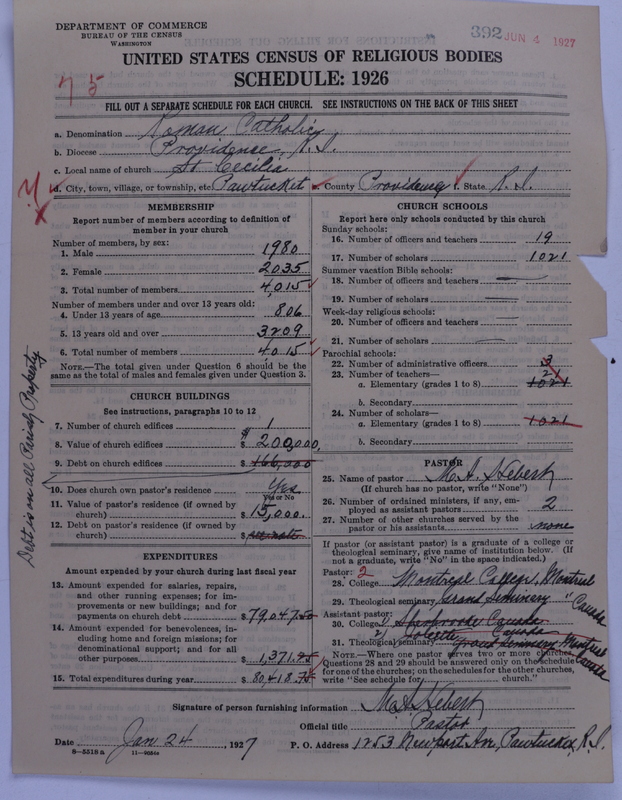 DEPARTMENT OF COMMERCE
BUREAU OF THE CENSUS
WASHINGTON
392 JUN 4 1927
UNITED STATES CENSUS OF RELIGIOUS BODIES
SCHEDULE: 1926
75
FILL OUT A SEPARATE SCHEDULE FOR EACH CHURCH. SEE INSTRUCTIONS ON THE BACK OF THIS SHEET
a. Denomination Roman Catholic
b. Diocese Providence, R.I.
c. Local name of church St Cecilia
d. City, town, village, or township, etc. Pawtucket e. County Providence f. State R.I.
MEMBERSHIP
Report number of members according to definition of member in your church
Number of members, by sex:
1. Male 1980
2. Female 2035
3. Total number of members 4,015
Number of members under and over 13 years old:
4. Under 13 years of age 806
5. 13 years old and over 3209
6. Total number of members 4015
NOTE.—The total given under Question 6 should be the same as the total of males and females given under Question 3.
CHURCH BUILDINGS
See instructions, paragraphs 10 to 12
7. Number of church edifices 1
8. Value of church edifices $ 200,000,
9. Debt on church edifices $ 166,000
Debt is on all Parish Property
10. Does church own pastor's residence Yes
Yes or No
11. Value of pastor's residence (if owned by church) $ 15,000.
12. Debt on pastor's residence (if owned by church) $ see note
EXPENDITURES
Amount expended by your church during last fiscal year
13. Amount expended for salaries, repairs, and other running expenses; for improvements or new buildings; and for payments on church debt $ 79,047.50
14. Amount expended for benevolences, including home and foreign missions; for denominational support; and for all other purposes $ 1,371.25
15. Total expenditures during year $ 80,418.75
CHURCH SCHOOLS
Report here only schools conducted by this church
Sunday schools:
16. Number of officers and teachers 19
17. Number of scholars 1021
Summer vacation Bible schools:
18. Number of officers and teachers —
19. Number of scholars —
Week-day religious schools:
20. Number of officers and teachers —
21. Number of scholars —
Parochial schools:
22. Number of administrative officers 3
23. Number of teachers—
a. Elementary (grades 1 to 8) 21 1021
b. Secondary
24. Number of scholars—
a. Elementary (grades 1 to 8) 1021
b. Secondary
PASTOR
25. Name of pastor M. A. Hebert
(If church has no pastor, write "None")
26. Number of ordained ministers, if any, employed as assistant pastors 2
27. Number of other churches served by the pastor or his assistants none
If pastor (or assistant pastor) is a graduate of a college or theological seminary, give name of institution below. (If not a graduate, write "No" in the space indicated.)
Pastor: 2
28. College Montreal College, Montreal
29. Theological seminary Grand Seminary " Canada
Assistant pastor:
30. College 1) Sherbrooke Canada
2) Joliette Canada
31. Theological seminary Grand Seminary Montreal Canada
NOTE.—Where one pastor serves two or more churches, Questions 28 and 29 should be answered only on the schedule for one of the churches; on the schedules for the other churches, write "See schedule for church."
Signature of person furnishing information M. A. Hebert
Official title Pastor
Date Jan 24, 1927
P. O. Address 1253 Newport Ave, Pawtucket, R.I.
8—5318 a